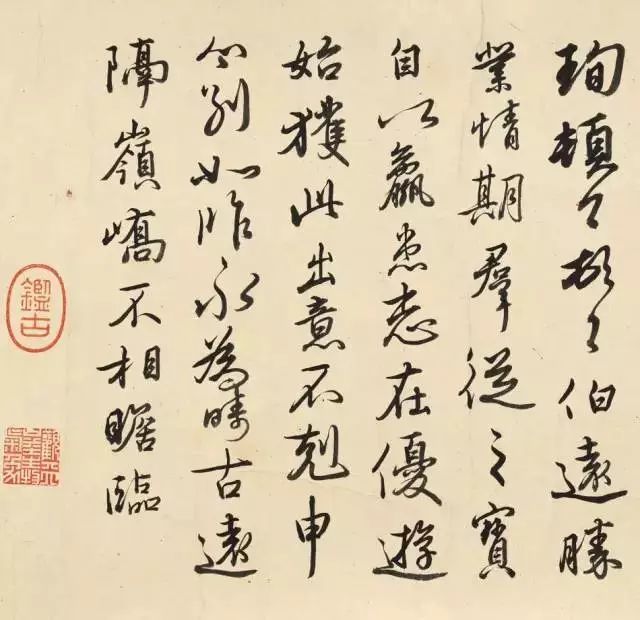 珣頓首頓首伯遠勝
業情期羣從之寶
自以羸患志在優遊
始獲此出意不剋申
分別如昨永為疇古遠
隔嶺嶠不相瞻臨
鑑古